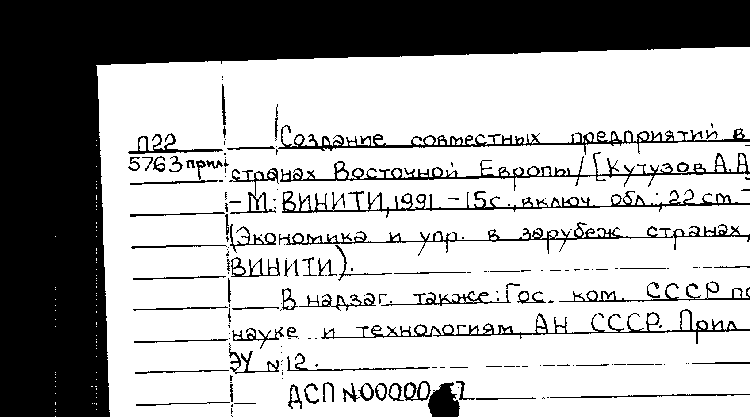 П22
5763 прил
Создание совместных предприятий в
странах Восточной Европы/[Кутузов А.А
– М.: ВИНИТИ, 1991 – 15с., включ. обл.; 22 ст. –
(Экономика и упр. в зарубеж. странах,
ВИНИТИ).
В надзаг. также: Гос. ком. СССР по
науке и технологиям, АН СССР. Прил
ЭУ №12.
ДСП №00000